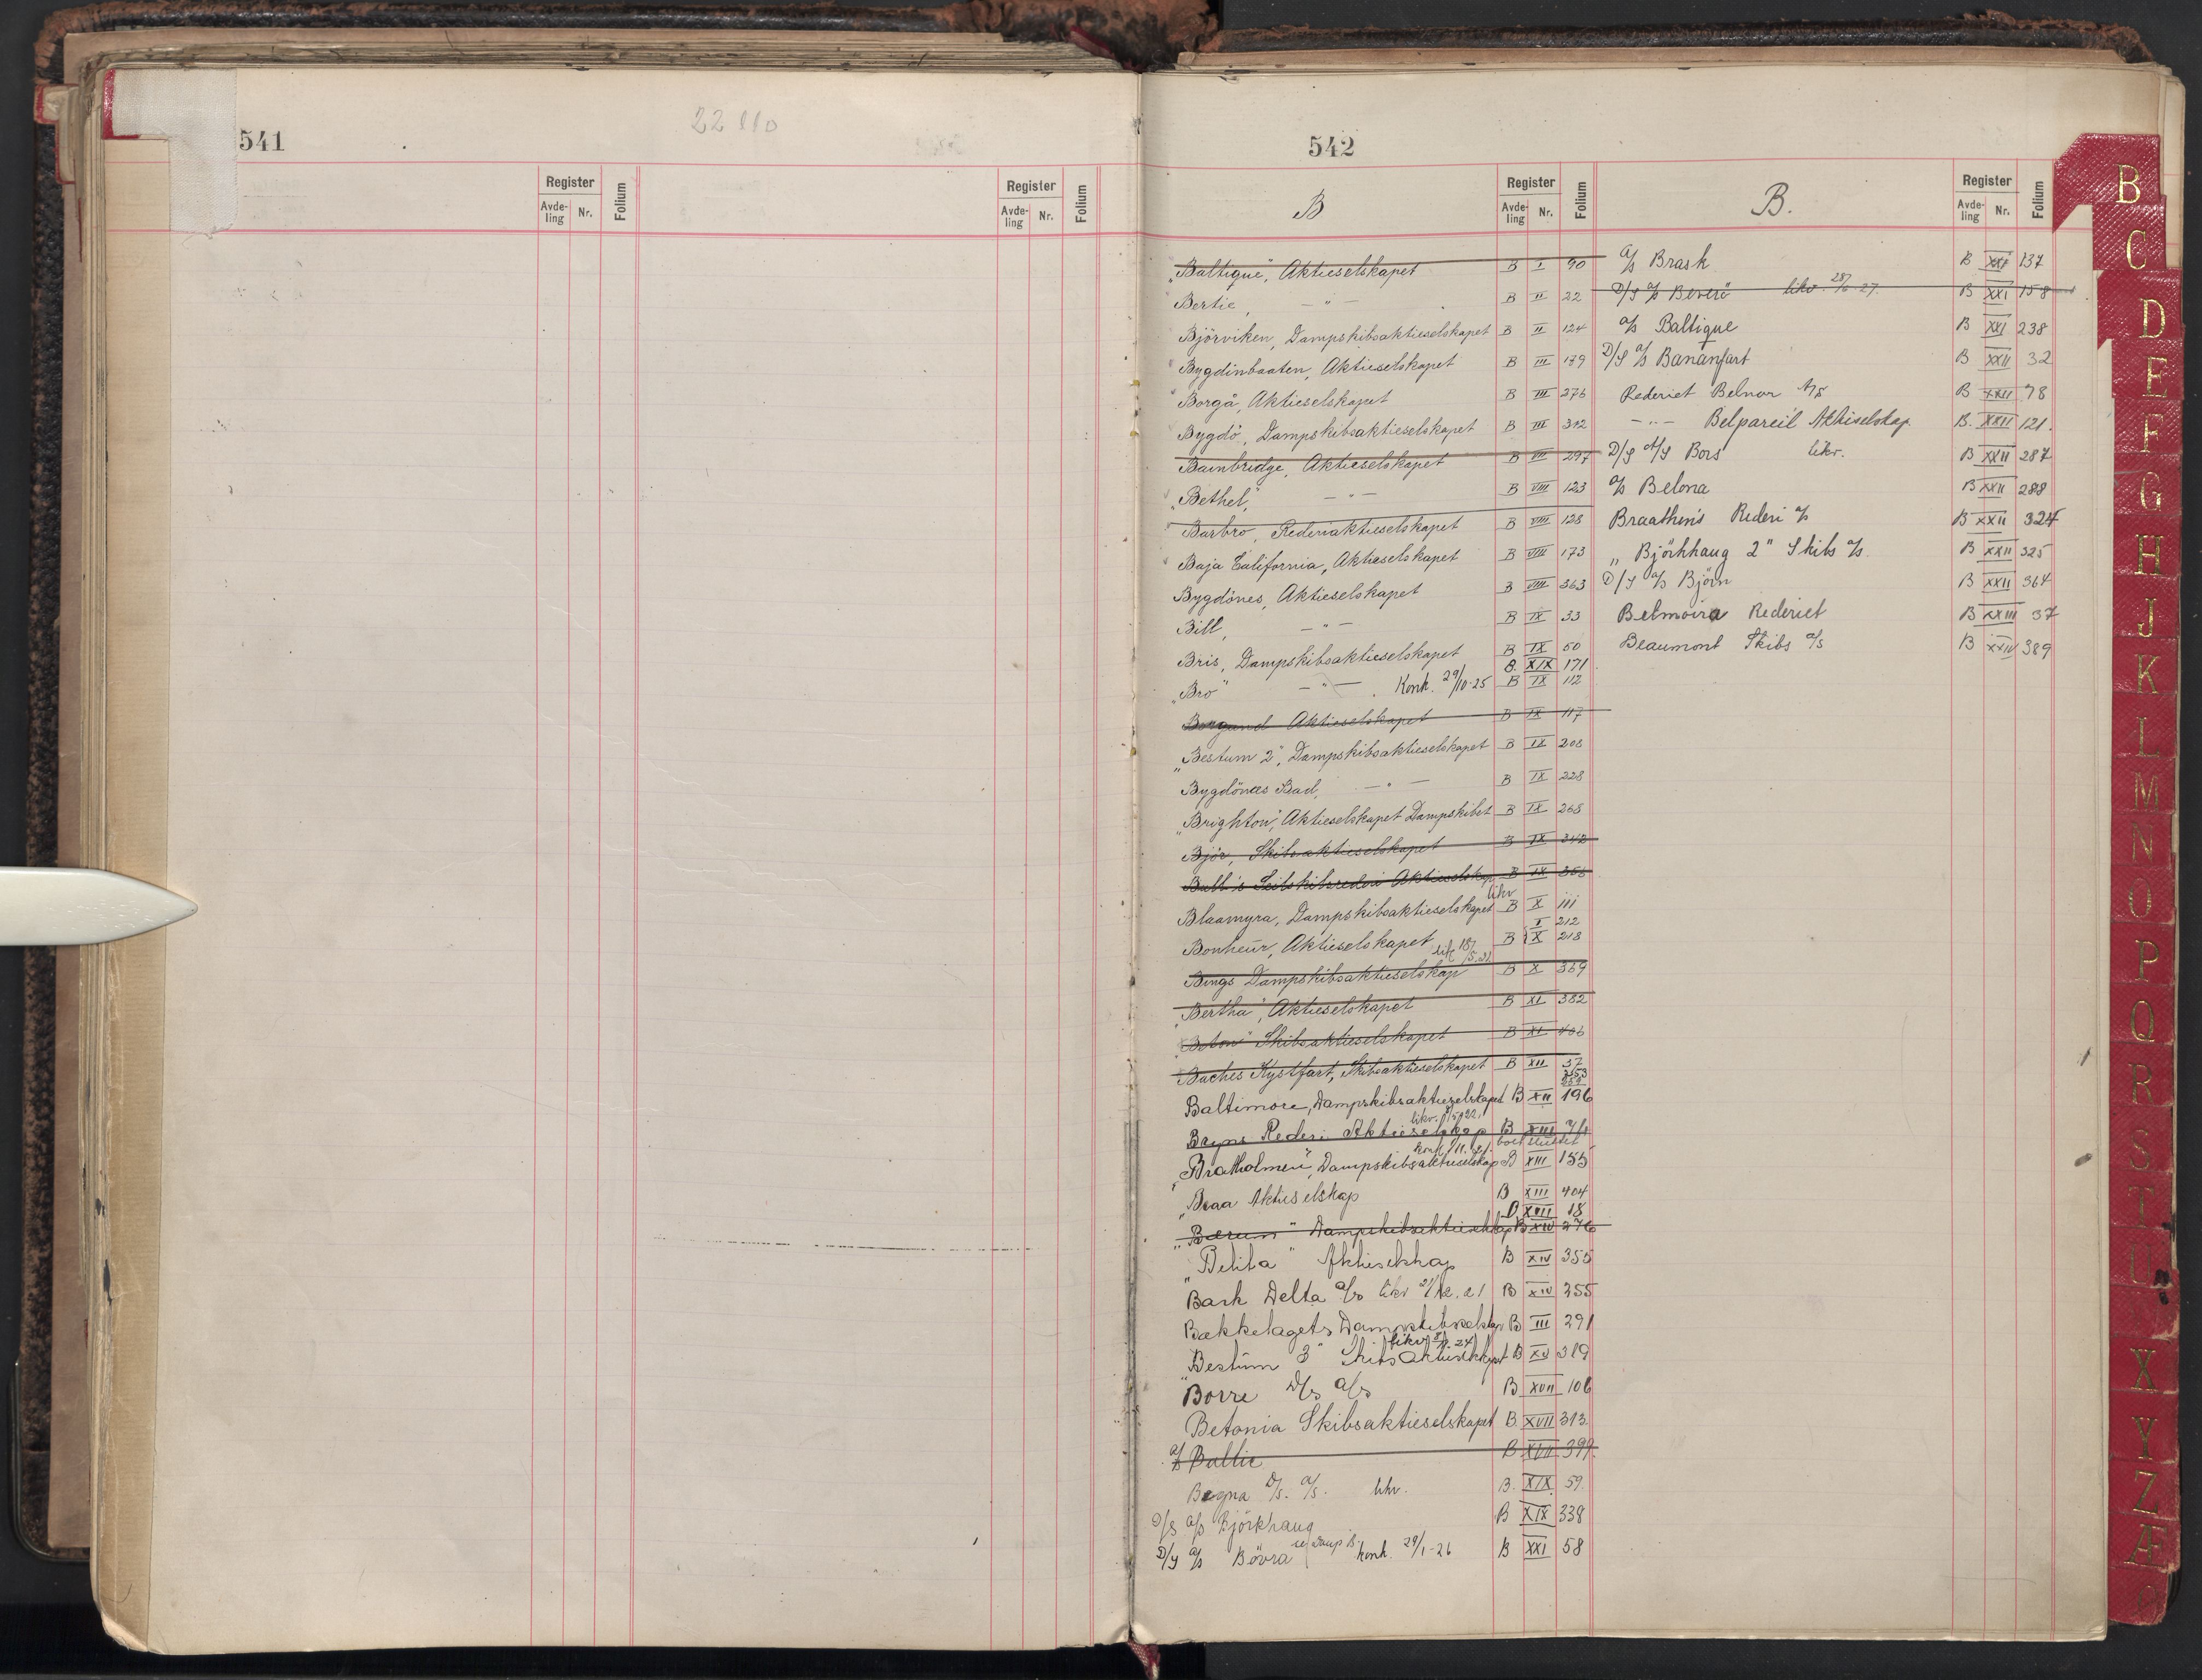 541
Register
Avde-ling Nr. Folium
Register
Avde-ling Nr. Folium
542
B
Register
Avde-ling Nr. Folium
B.
Register
Avde-ling Nr. Folium
"Baltique", Aktieselskapet B I 90
Bertie, — " — B II 22
Björviken, Dampskibsaktieselskapet B II 124
Bygdinbaaten, Aktieselskapet B III 179
Borgå, Aktieselskapet B III 276
Bygdö, Dampskibsaktieselskapet B III 312
Bainbridge, Aktieselskapet B VII 297
"Bethel", — " — B VIII 123
Barbro, Rederiaktieselskapet B VIII 128
Baja California, Aktieselskapet B VIII 173
Bygdönes, Aktieselskapet B VIII 363
Bill, — " — B IX 33
Bris, Dampskibsaktieselskapet B IX 50
B. XIX 171
"Bro" — " — . Konk. 29/10-25 B IX 112
Borgund Aktieselskapet B IX 117
"Bestum 2", Dampskibsaktieselskapet B IX 208
Bygdönes Bad, — " — B IX 228
"Brighton", Aktieselskapet Dampskibet B IX 268
Bjør, Skibsaktieselskapet B IX 342
Bull's Seilskibsrederi Aktieselskap B IX 356
likv
Blaamyra, Dampskibsaktieselskapet B X 111
I 212
Bonheur, Aktieselskapet B X 218
Bings Dampskibsaktieselskap B X 369
"Bertha", Aktieselskapet B XI 382
"Beton" Skibsaktieselskapet B XI 406
Baches Kystfart, Skibsaktieselskapet B XII 37
Baltimore, Dampskibsaktieselskapet B XII 196
Bryns Rederi Aktieselskap B XIII
boet sluttet
"Bratholmen", Dampskibsaktieselskap B XIII 155
"Braa Aktieselskap B XIII 404
XVII 18
"Bærum" Dampskibsaktieselskap B XIV 276
"Belita" Aktieselskap B XIV 355
Bark Delta a/s likv 21/12.21 B XIV 355
Bækkelagets Dampskibsselskap B III 291
"Bestum 3" Skibsaktieselskapet B XV 319
Borre D/s a/s B XVII 106
Betania Skibsaktieselskapet B. XVII 313.
a/s Baltic B XVII 399.
Begna D/s. a/s. likv. B. XIX 59.
D/S a/s Björkhaug B XIX 338
D/S a/s Bövra konk. 29/1-26 B XXI 58
a/s Brask B XXI 137
D/S a/s Beverö likv. 28/6-27. B XXI 158
a/s Baltique B XXI 238
D/S a/s Bananfart B XXII 32
Rederiet Belnor A/S B XXII 78
— " — Belpareil Aktieselskap. B. XXII 121.
D/S A/S Bors likv. B XXII 287
a/s Belona B XXII 288
Braathen's Rederi a/s B XXII 324
"Björkhaug 2" Skibs a/s. B XXII 325
D/S a/s Björn B XXII 364
Belmoira Rederiet B XXIII 37
Beaumont Skibs a/s B XXIV 389
B
C
D
E
F
G
H
J
K
L
M
N
O
P
Q
R
S
T
U
X
Y
Z
Æ
Ø